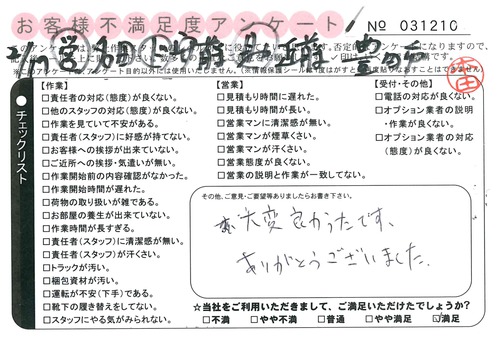 お客様不満足度アンケート
№ 031210
チェックリスト
【作業】
□責任者の対応(態度)が良くない。
□他のスタッフの対応(態度)が良くない。
□作業を見ていて不安がある。
□責任者(スタッフ)に好感が持てない。
□お客様への挨拶が出来ていない。
□ご近所への挨拶・気遣いが無い。
□作業開始前の内容確認がなかった。
□作業開始時間が遅れた。
□荷物の取り扱いが雑である。
□お部屋の養生が出来ていない。
□作業時間が長すぎる。
□責任者(スタッフ)に清潔感が無い。
□責任者(スタッフ)が汗くさい。
□トラックが汚い。
□梱包資材が汚い。
□運転が不安(下手)である。
□靴下の履き替えをしてない。
□スタッフにやる気がみられない。
【営業】
□見積もり時間に遅れた。
□見積もり時間が長い。
□営業マンに清潔感が無い。
□営業マンが煙草くさい。
□営業マンが汗くさい。
□営業態度が良くない。
□営業の説明と作業が一致してない。
【受付・その他】
□電話の対応が良くない。
□オプション業者の説明
・作業が良くない。
□オプション業者の対応
(態度)が良くない。
その他、ご意見・ご要望等ありましたらお書き下さい。
大変良かったです。
ありがとうございました。
☆当社をご利用いただきまして、ご満足いただけたでしょうか?
□不満 □やや不満 □普通 □やや満足 ☑満足